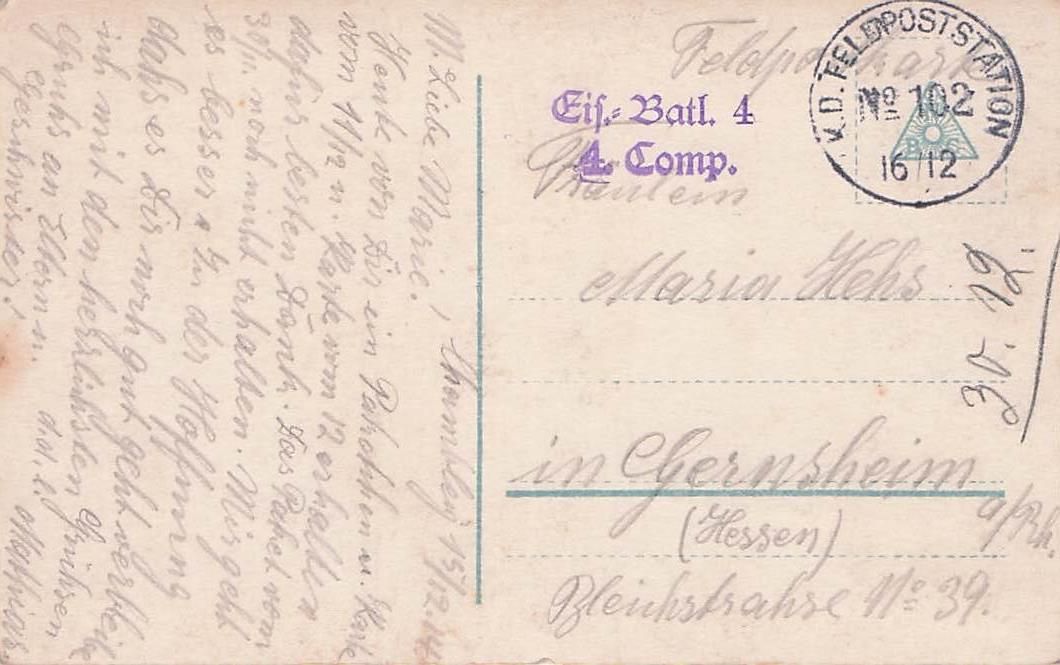 Feldpostkarte
K.D. FELDPOSTSTATION
No 102
16/12
Eis.-Batl. 4
4. Comp.
Fräulein
Maria Hehs
in Gernsheim
a/Rh.
(Hessen)
Bleichstrahse No 39.
30. 12.
Chambley 15/12.14
M. Liebe Marie!
Heute von Dir ein Paketchen u. Karte
vom 11/12 u. Karte vom 12 erhalten
dafür besten Dank. Das Paket vom
noch nicht erhalten. Mir geht
es besser. In der Hoffnung
dahs es Dir noch gut geht verbleibe
ich mit den herzlichsten Grühsen
Gruhs an Eltern u.
Geschwister! Mathias.